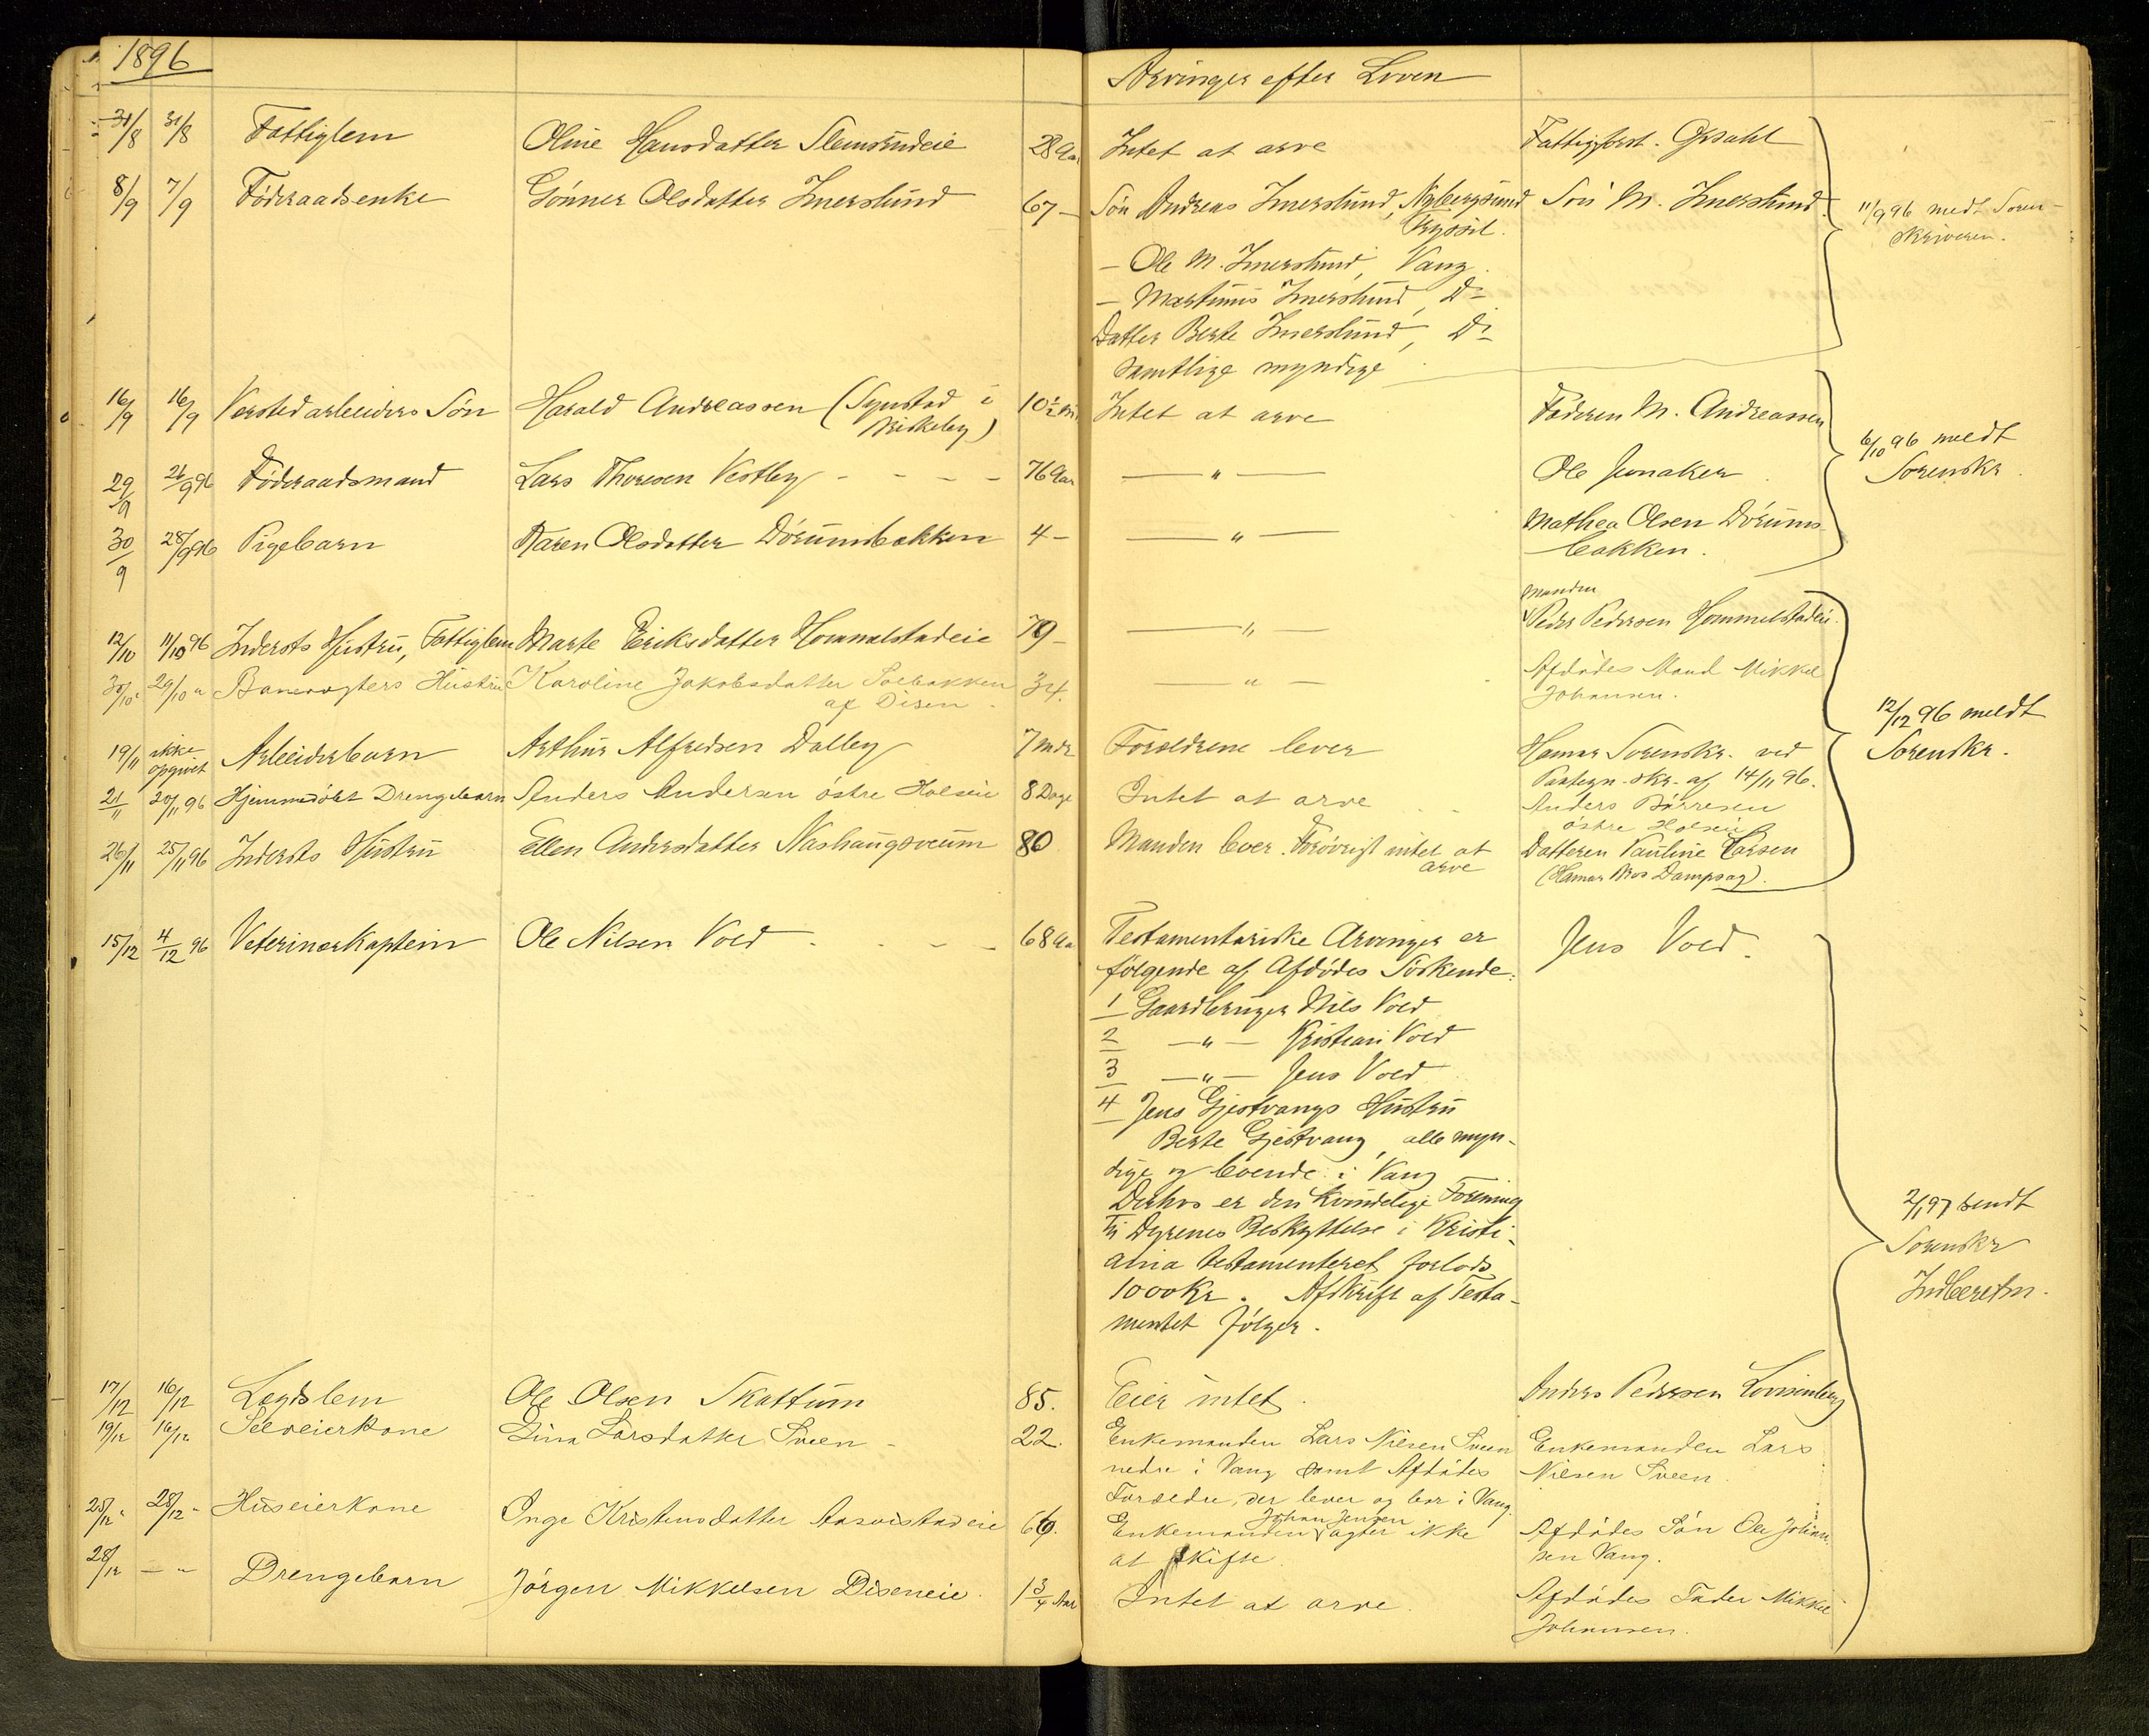 1896
Arvinger efter Loven
31/8 31/8 Fattiglem Oline Hansdatter Slemsrudeie 28 Aar Intet at arve Fattigforst. Grøahl
8/9 7/9 Føderaadsenke Gønner Olsdatter Imerslund 67 – Søn Andreas Imerslund, Nybergsund Søn M. Imerslund
Trysil.
11/9 96 medt Soren-
skriveren.
– Ole M. Imerslund, Vang.
– Martinus Imerslund, Do
Datter Berte Imerslund, Do
samtlige myndige
16/9 16/9 Verstedarbeiders Søn Harald Andreassen (Synstad i 10½ Mr Intet at arve Faderen M. Andreassen
Birkeby)
29/9 26/9 96 Føderaadsmand Lars Thoresen Vestby – – – – 76 Aar — " — Ole Junaker
6/10 96 meldt
Sorenskr.
30/9 28/9 96 Pigebarn Karen Olsdatter Dørumsbakken 4 – — " — Mathea Olsen Dørums-
bakken.
Manden
12/10 11/10 96 Indersts Hustru, Fattiglem Marte Eriksdatter Hommelstadeie 79 – — " — Peder Pedersen Hommelstadeie.
30/10 " 29/10 " Banevogters Hustru Karoline Jakobsdatter Solbakken 34. — " — Afdødes Mand Mikkel
af Disen. Johansen.
19/11 ikke opgivet Arbeiderbarn Arthur Alfredsen Dalby 7 mdr Forældrene lever Hamar Sorenskr. ved
Paategn. skr. af 14/11 96.
12/12 96 meldt
Sorenskr.
21/11 20/11 96 Hjemmedøbt Drengebarn Anders Andersen østre Holseie 8 Dage Intet at arve Anders Børresen
østre Holseie
26/11 25/11 96 Indersts Hustru Ellen Andersdatter Nashaugsveum 80 Manden lever. Forøvrigt intet at Datteren Pauline Larsen
arve (Hamar Bros Dampsag).
15/12 4/12 96 Veterinærkaptein Ole Nilsen Vold – – – 68 Aa Testamentariske Arvinger er Jens Vold.
følgende af Afdødes Søskende:
1 Gaardbruger Nils Vold
2 — " — Kristian Vold
3 — " — Jens Vold
4 Jens Gjestvangs Hustru
Berte Gjestvang, alle myn-
dige og boende i Vang
Derhos er den Kvindelige Forening
til Dyrenes Beskyttelse i Kristi-
ania testamenteret forlods
1000 Kr. Afskrift af Testa-
mentet følger.
2/1 97 sendt
Sorenskr
Indberetn.
17/12 16/12 Lægdslem Ole Olsen Skattum 85. Eier intet. Anders Pedersen Lovisenberg
19/12 16/12 Selveierkone Lina Larsdatter Sveen – 22. Enkemanden Lars Nilsen Sveen Enkemanden Lars
nedre i Vang samt Afdødes Nilsen Sveen.
Forældre, der lever og bor i Vang.
28/12 " 28/12 " Huseierkone Inge Kristensdatter Aasvistadeie 66. Enkemanden Johan Jensen agter ikke Afdødes Søn Ole Johan-
at skifte. sen Vang.
28/12 – " Drengebarn Jörgen Mikkelsen Diseneie. 1¾ Aar Intet at arve. Afdødes Fader Mikkel
Johansen.